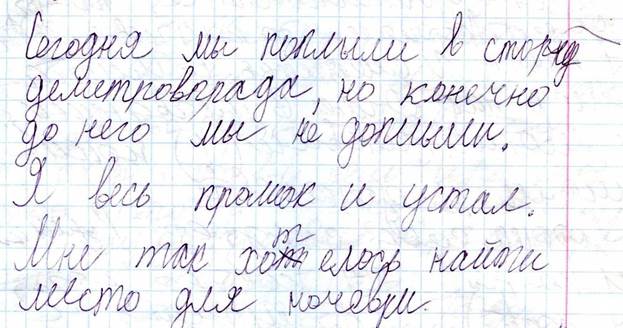 Сегодня мы поплыли в сторону
демитровграда, но конечно
до него мы не доплыли.
Я весь промок и устал.
Мне так хотелось найти
место для ночёвки.